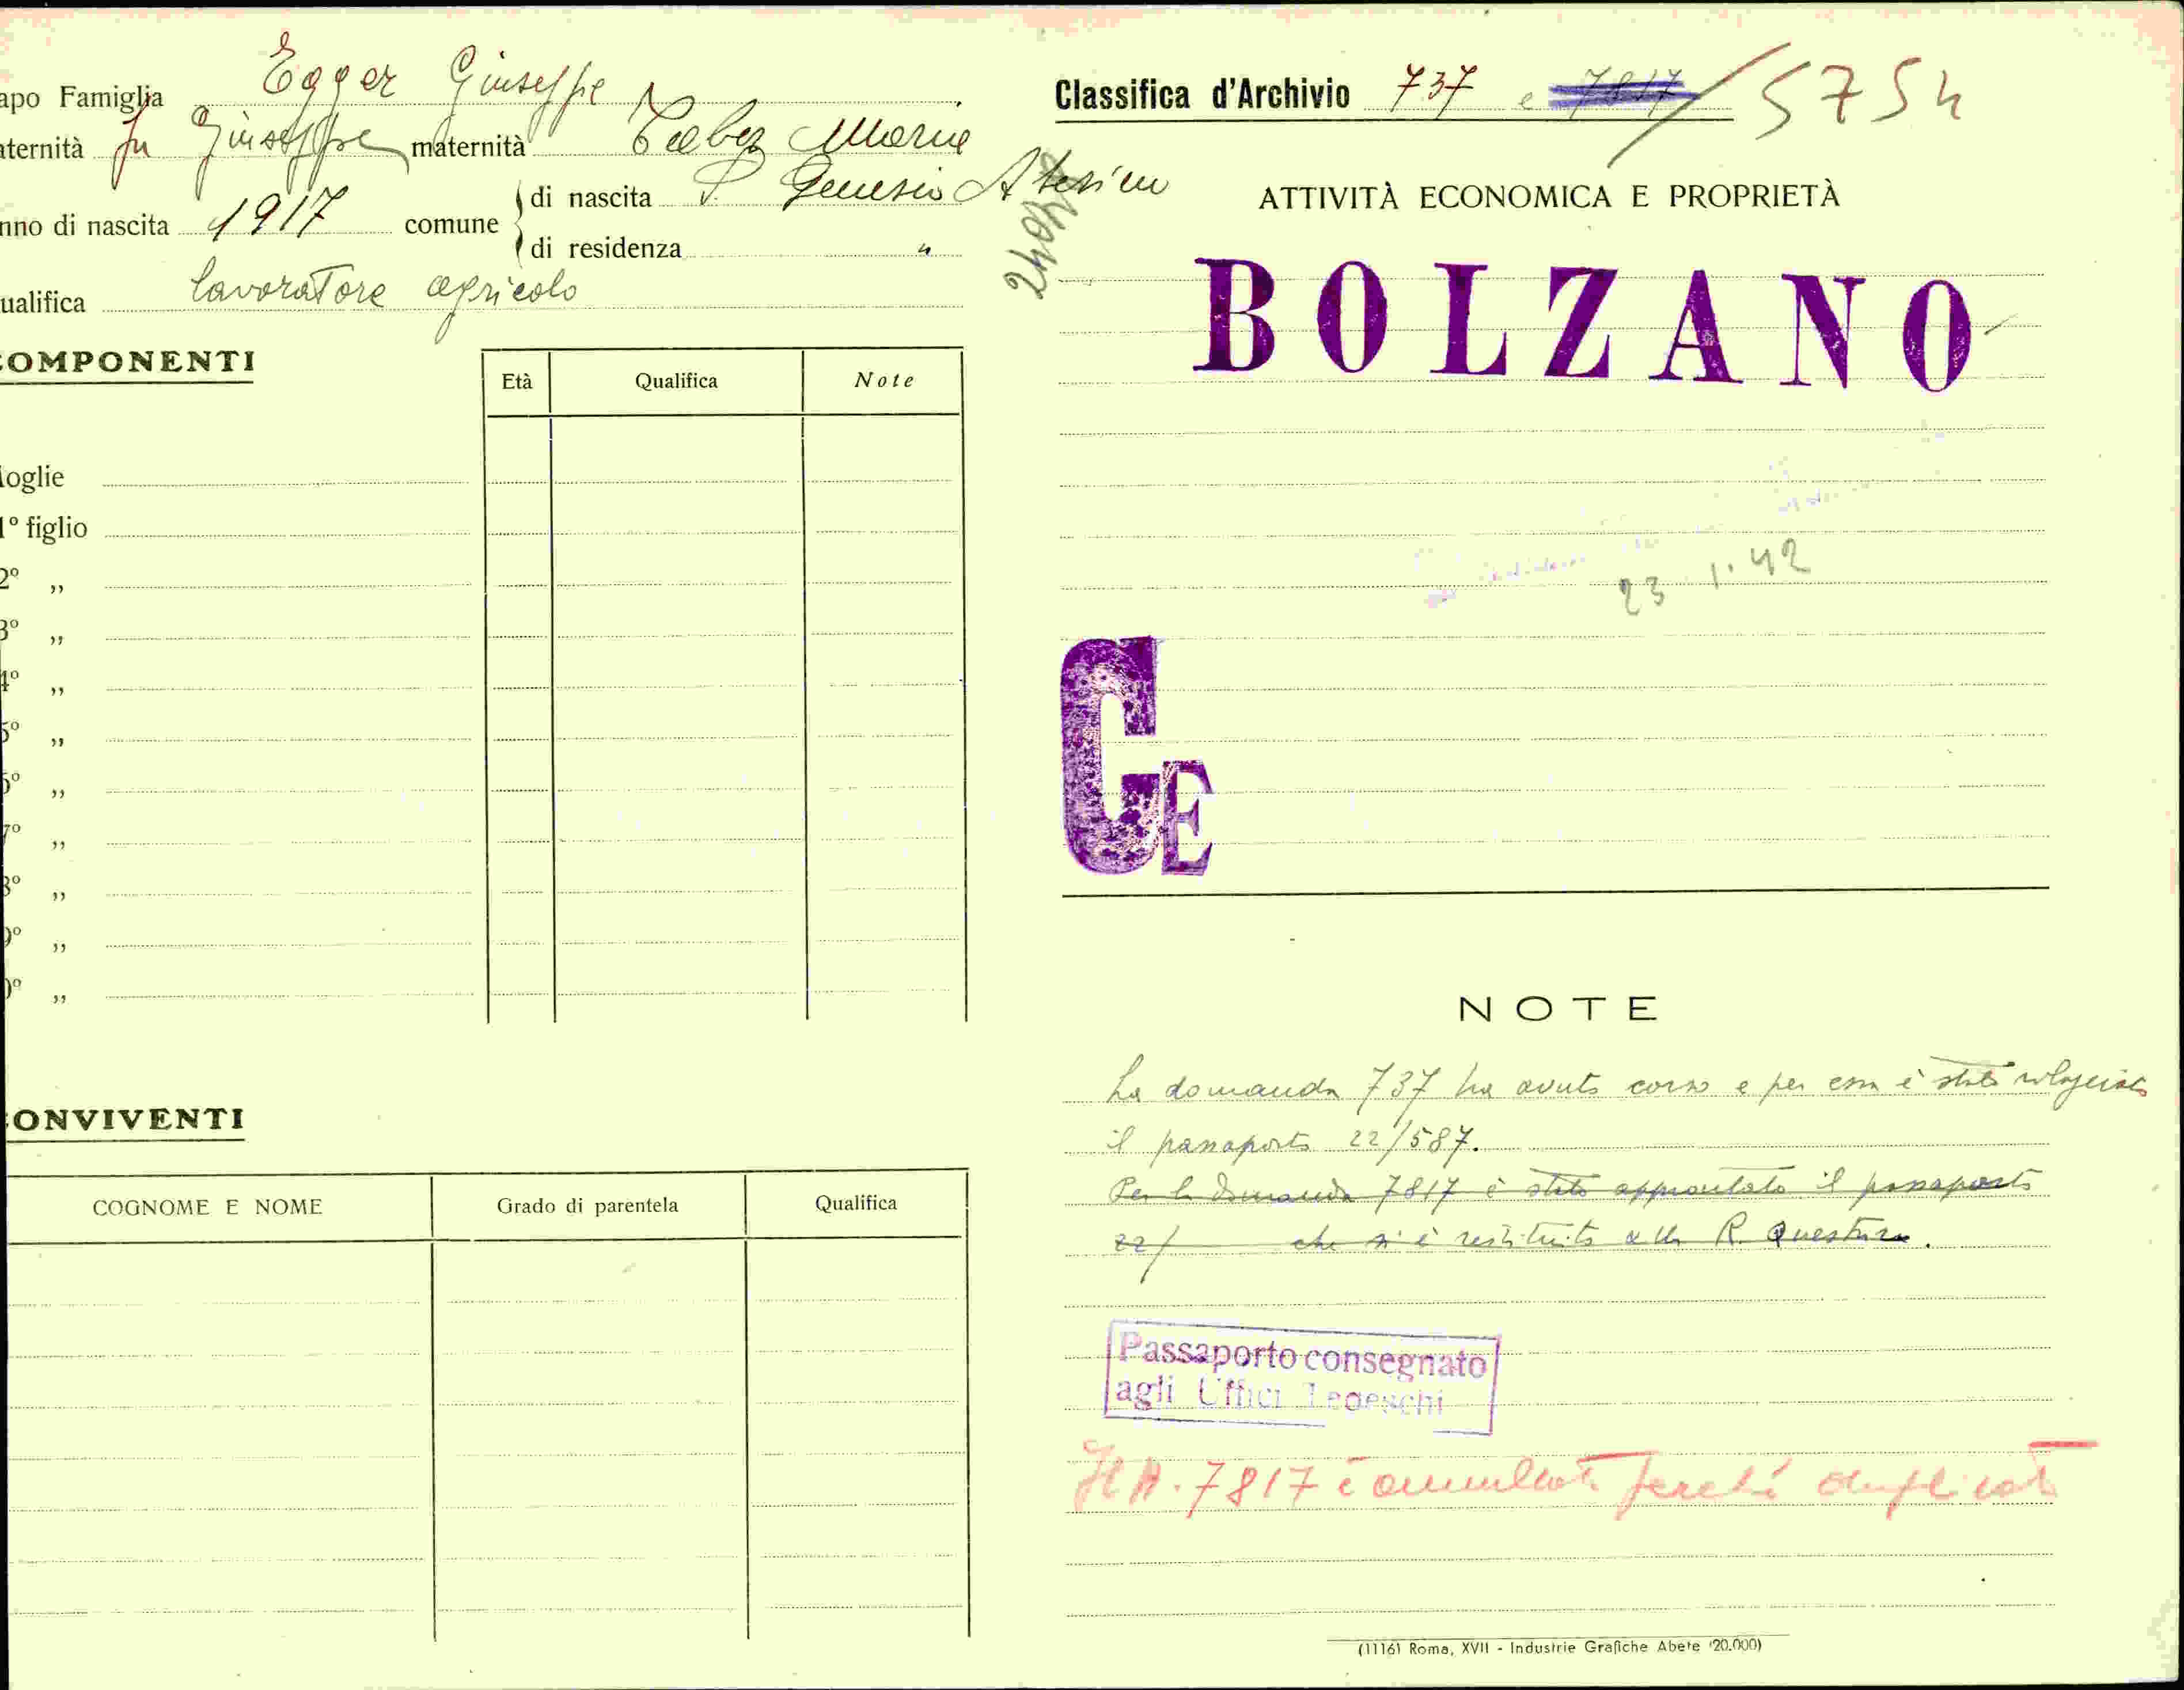 apo Famiglia Egger Giuseppe
aternità fu Giuseppe maternità Maria
nno di nascita 1917 comune di nascita S. Genesio Atesino
di residenza "
ualifica lavoratore agricolo
COMPONENTI
Età Qualifica Note
oglie
1º figlio
2º „
3º „
4º „
5º „
6º „
7º „
8º „
9º „
0º „
CONVIVENTI
COGNOME E NOME Grado di parentela Qualifica
Classifica d'Archivio 737 e 7817 / 5754
ATTIVITÀ ECONOMICA E PROPRIETÀ
BOLZANO
23 1.42
GE
NOTE
La domanda 737 ha avuto corso e per essa è stato rilasciato
il passaporto 22/587.
Per la domanda 7817 è stato approntato il passaporto
22/ che si è restituito alla R. Questura.
Passaporto consegnato
agli Uffici Tedeschi
7817 è annullata perché duplicato
(1116) Roma, XVII - Industrie Grafiche Abete (20.000)